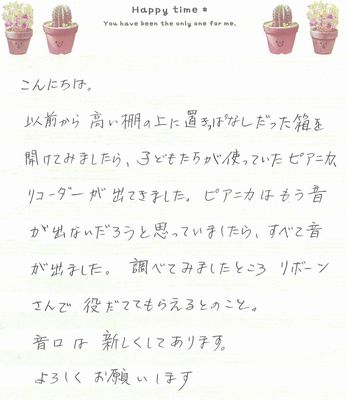 Happy time *
You have been the only one for me.
こんにちは。
以前から 高い棚の上に 置きっぱなしだった箱を
開けてみましたら、子どもたちが使っていたピアニカ、
リコーダーが出てきました。ピアニカはもう音
が出ないだろうと思っていましたら、すべて音
が出ました。 調べてみましたところ リボーン
さんで 役だててもらえるとのこと。
音口は 新しくしてあります。
よろしく お願いします